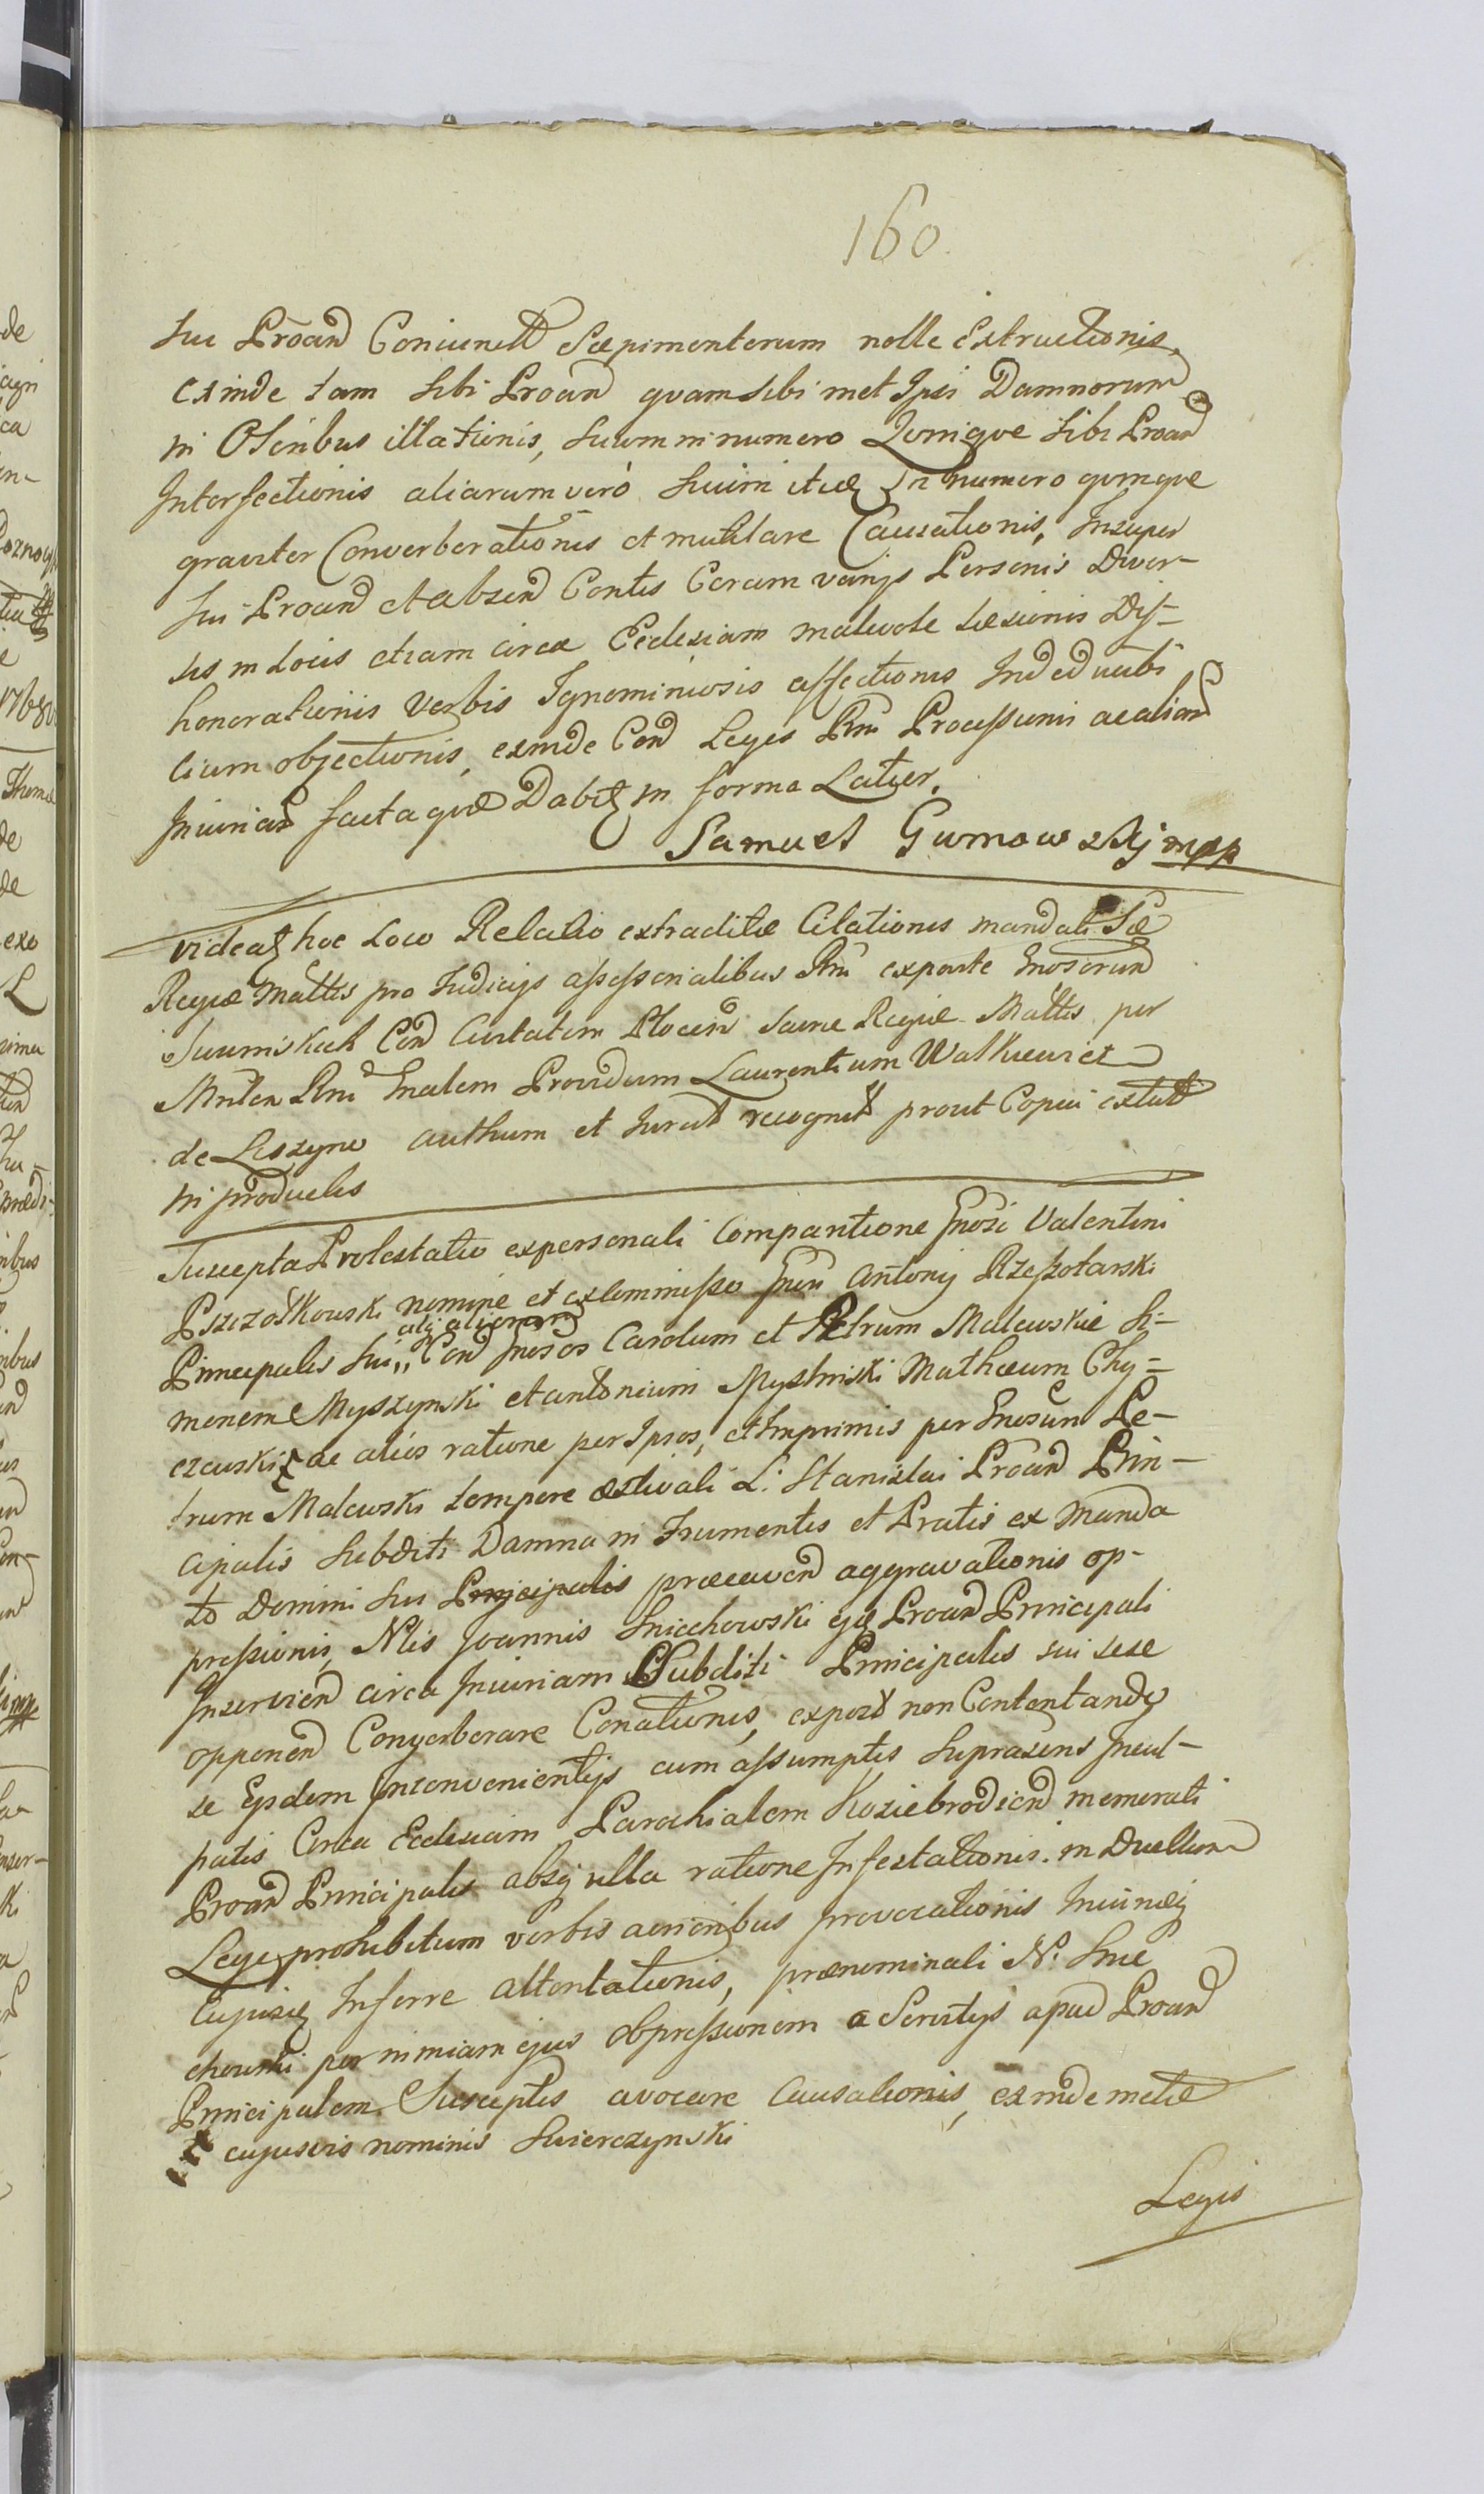 160
sui Proand Coniunctt Sæpimentorum nolle Extructionis,
exinde tam sibi Proand quam sibi met Ipsi Damnorum
in Oleribus illationis, suum in numero sibi Proand
Interfectionis aliarum verò suum in numero quinque
graviter Converberationis et mutilare Causationis, Insuper
sui Proand et absen Contis Coram varijs Personis Diver-
sis in Locis etiam circa Ecclesiam malevole Læsionis Dis-
honorationis Verbis Ignominiosis affectionis
objectionis, exinde Con Leges Rni Processum ac aliar
Iniuriar facta que Dabit in forma Latior.
Samuel Gurnowskij mpp
videatz hoc Loco Relatio extraditæ Citationis mandati Sæ
Regiæ Mattis pro Judicijs assessorialibus Rni exparte Gnosorum
Con Civitatem Plocen Sacræ Regiæ Mattis per
Mnlen Rni Gnalem Providum Laurentium Walkiewicz
de Leszyno authum et Jurat recognit prout Copia extatt
in productis
Suscepta Protestatio expersonali Comparitione Gnosi Valentini
Pszczołkowski nomine et exlommisso Gnosi Antonij Rzeszotarski
alq aliorum
Principalis sui,, Con Gnosos Carolum et Petrum Malewskie Si-
monem Myszynski et antonium Myslinski Mathæum Chy=
czewski de alios ratione per Ipsos, et Imprimis per Gnosum Pe-
trum Malewski tempore æstivali L: Stanislai Proand Prin-
cipalis Subditi Damna in Frumentis et Pratis ex Manda
to Domini sui Principalis præcaven aggravationis op-
pressionis, Nlis Joannis Sniechowski ejq Proand Principali
Inservien circa Iniuriam Subditi Principalis sui sese
opponen Converberare Conationis, expost non Contentando
se Ejsdem Inconvenientijs cum assumptis Suprascris Incul-
patis Circa Ecclesiam Parochialem Koziebrodzien memorati
Proand Principalis absq ulla ratione Infestationis in Duellum
Lege prohibitum verbis acrioribus provocationis Iniuriæq
Cujusq Inferre attentationis, prænominati N. Snie
chowski per nimiam ejus Obpressionem a Servitijs apud Proand
Principalem Susceptis avocare Causationis, exinde metæ
et cujusvis nominis Swierczynski
Legis